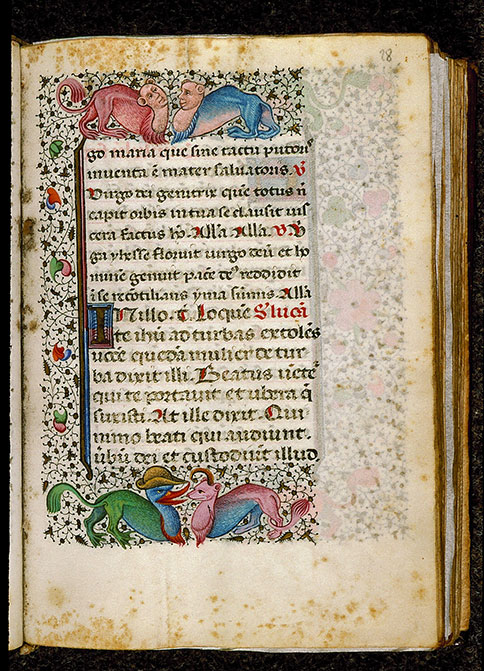 28
go maria que sine tactu pudoris
inventa ē mater salvatoris. V
Virgo dei genitrix que totus n̄
capit orbis in tua se clausit vis
cera factus hō. Alla Alla. V V
ga yhesse floruit virgo deū et ho
minē genuit pacē deꝰ reddidit
ī se recōcilians yma sūmis. Alla
In illo. T. Loquē S lucā
te ihū ad turbas extolēs
vocē quedā mulier de tur
ba dixit illi. Beatus vēter
qui te portavit et ubera q̄
suxisti. At ille dixit. Qui
nimo beati qui audiunt.
ūbū dei et custodiūt illud